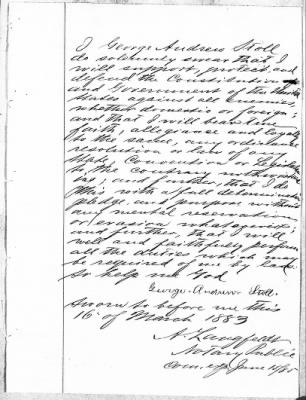 I George Andrew Stoll
do solemnly swear that I
will support, protect, and
defend the Constitution
and Government of the United
States against all enemies,
whether domestic or foreign;
and that I will bear true
faith, allegiance and loyalty
to the same, any ordinance
resolution or law of any
State, Convention or Legislature
to the contrary notwithstanding
and further, that I do
this with a full determination
pledge, and purpose without
any mental reservation
or evasion whatsoever;
and further, that I will
well and faithfully perform
all the duties which may
be required of me by law.
So help me God
George Andrew Stoll.
Sworn to before me this
16 of March 1883
A. Langfeldt
Notary Public
Com. exp June